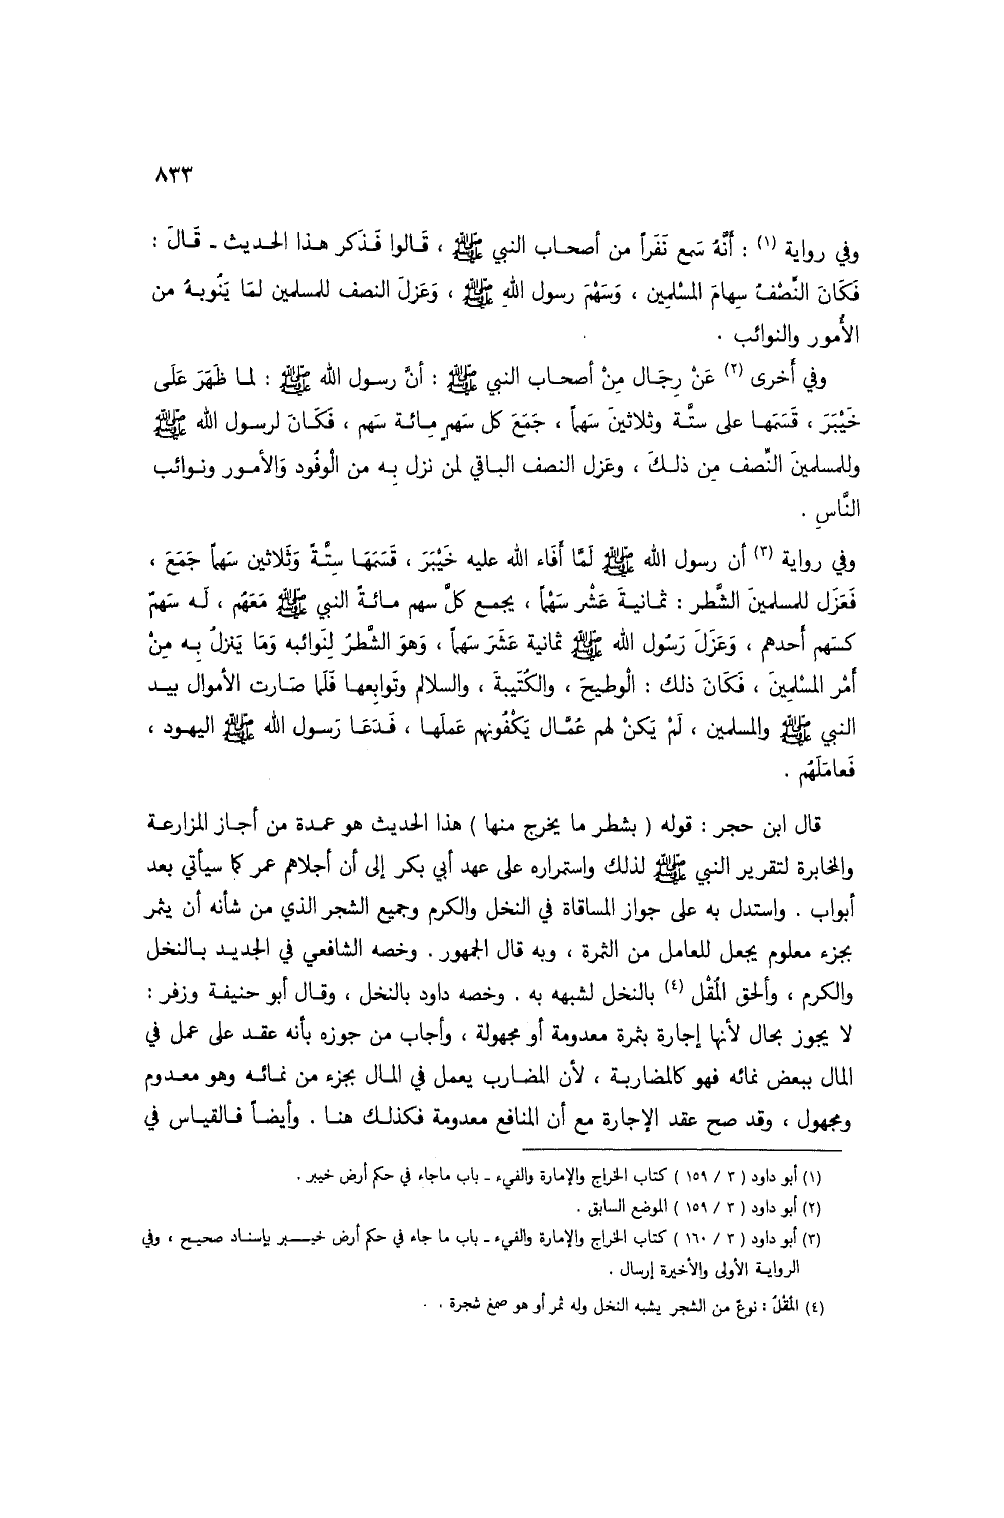 ٨٣٣
وفي رواية (١) : أَنَّهُ سَمِع نَفَراً من أصحاب النبي ﷺ ، قَالوا فَذَكر هذا الحديث ـ قَالَ :
فَكَانَ النِّصْفُ سِهامَ المسْلمِين ، وَسَهْمَ رسول اللهِ ﷺ ، وَعَزلَ النصف للمسلمين لمَا يَنُوبهُ من
الأُمور والنوائب .
وفي أُخرى (٢) عَنْ رِجَال مِنْ أصحاب النبي ﷺ : أنَّ رسول الله ﷺ : لما ظَهَرَ عَلَى
خَيْبَرَ ، قَسَمَها على ستَّة وثلاثينَ سَهماً ، جَمَعَ كل سَهمٍ مِائة سَهم ، فَكَانَ لرسول الله ﷺ
وللمسلمينَ النِّصف مِن ذلكَ ، وعَزل النصف الباقي لمن نزل بِه من الْوفُود وَالأمور ونوائب
النَّاسِ .
وفي رواية (٣) أن رسول الله ﷺ لَمَّا أَفَاء الله عليه خَيْبَرَ ، قَسَمَهَا سِتَّةً وَثَلاثين سَهماً جَمَعَ ،
فَعَزَل للمسلمينَ الشَّطر : ثمانيةَ عَشْر سَهْماً ، يجمع كلَّ سهم مائةً النبي ﷺ مَعَهُم ، لَه سَهمٌ
كسَهم أَحدهم ، وَعَزَلَ رَسُول الله ﷺ ثمانية عَشَرَ سَهماً ، وَهوَ الشَّطرُ لِنَوائبه وَمَا يَنزلُ بِه مِنْ
أمْر المسْلمِينَ ، فَكَانَ ذلك : الْوطيحَ ، والكُتَيبةَ ، والسلالم وتَوابِعها فَلَما صَارت الأموال بيد
النبي ﷺ والمسلمين ، لَمْ يَكنْ لهم عُمَّال يَكْفُونهم عَملَها ، فَدَعَا رَسول الله ﷺ اليهود ،
فَعامَلَهُم .
قال ابن حجر : قوله ( بشطر ما يخرج منها ) هذا الحديث هو عمدة من أجاز المزارعة
والمخابرة لتقرير النبي ﷺ لذلك واستمراره على عهد أبي بكر إلى أن أجلاهم عمر كما سيأتي بعد
أبواب . واستدل به على جواز المساقاة في النخل والكرم وجميع الشجر الذي من شأنه أن يثمر
بجزء معلوم يجعل للعامل من الثمرة ، وبه قال الجمهور . وخصه الشافعي في الجديد بالنخل
والكرم ، وألحق المُقْل (٤) بالنخل لشبهه به . وخصه داود بالنخل ، وقال أبو حنيفة وزفر :
لا يجوز بحال لأنها إجارة بثمرة معدومة أو مجهولة ، وأجاب من جوزه بأنه عقد على عمل في
المال ببعض نمائه فهو كالمضاربة ، لأن المضارب يعمل في المال بجزء من نمائه وهو معدوم
ومجهول ، وقد صح عقد الإجارة مع أن المنافع معدومة فكذلك هنا . وأيضاً فالقياس في
(١) أبو داود ( ٣ / ١٥٩ ) كتاب الخراج والإمارة والفيء ـ باب ماجاء في حكم أرض خيبر .
(٢) أبو داود ( ٣ / ١٥٩ ) الموضع السابق .
(٣) أبو داود ( ٣ / ١٦٠ ) كتاب الخراج والإمارة والفيء ـ باب ما جاء في حكم أرض خيبر بإسناد صحيح ، وفي
الرواية الأولى والأخيرة إرسال .
(٤) المُقْلُ : نوعٌ من الشجر يشبه النخل وله ثمر أو هو صمغ شجرة .